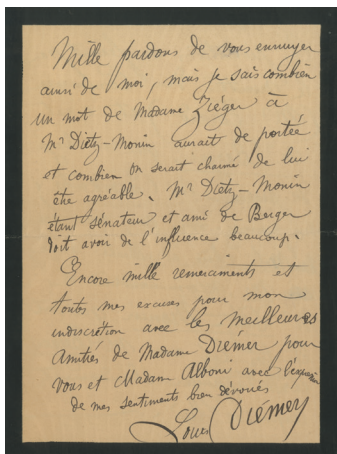 Mille pardons de vous ennuyer
ainsi de moi, mais je sais combien
un mot de Madame Ziéger à
Mr Diétz-Monin aurait de portée
et combien on serait charmé de lui
être agréable. Mr Diétz-Monin
étant sénateur et ami de Berger
doit avoir de l'influence beaucoup.
Encore mille remerciments et
toutes mes excuses pour mon
indiscrétion avec les meilleures
Amitiés de Madame Diémer pour
vous et Madame Alboni avec l'expression
de mes sentiments bien dévoués
Louis Diémer